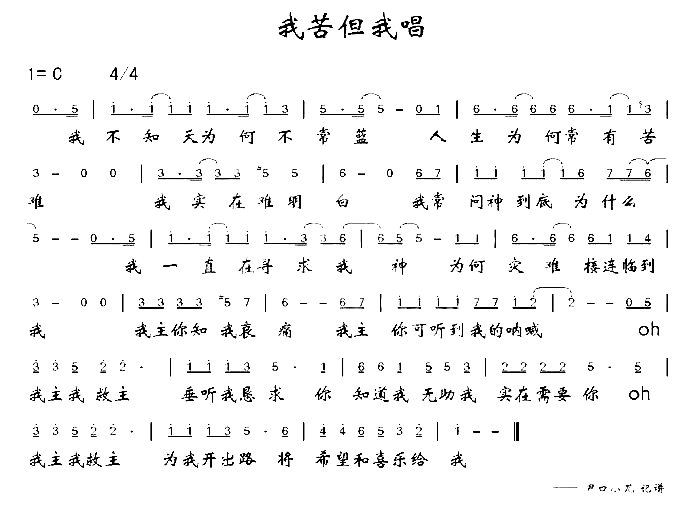 我苦但我唱
1= C 4/4
0 · 5 | 1 · 1 1 1 1 · 1 1 3 | 5 · 5 5 – 0 1 | 6 · 6 6 6 6 · 1 1 3 |
我 不 知 天为 何 不 常 蓝 人 生 为 何常 有 苦
3 – 0 0 | 3 · 3 3 3 #5 5 | 6 – 0 6 7 | 1 1 1 1 1 6 7 7 6 |
难 我 实 在 难 明 白 我常 问神 到底 为 什么
5 – – 0 · 5 | 1 · 1 1 1 1 · 3 3 6 | 6 5 5 – 1 1 | 6 · 6 6 6 6 1 1 4 |
我 一 直 在寻 求 我 神 为何 灾 难 接连临到
3 – 0 0 | 3 3 3 3 #5 7 | 6 – – 6 7 | 1 1 1 1 7 7 1 2 | 2 – – 0 5 |
我 我主你知 我哀 痛 我主 你可听到我的呐喊 oh
3 3 5 2 2 · | 1 1 1 3 5 · 1 | 6 6 1 5 5 3 | 2 2 2 2 5 · 5 |
我主我救主 垂听我恳 求 你 知道我 无助我 实在需要你 oh
3 3 5 2 2 · | 1 1 1 3 5 · 6 | 4 4 6 5 3 2 | 1 – – ‖
我主我救主 为我开出路 将 希望和喜乐给 我
—— 尹口小 记谱